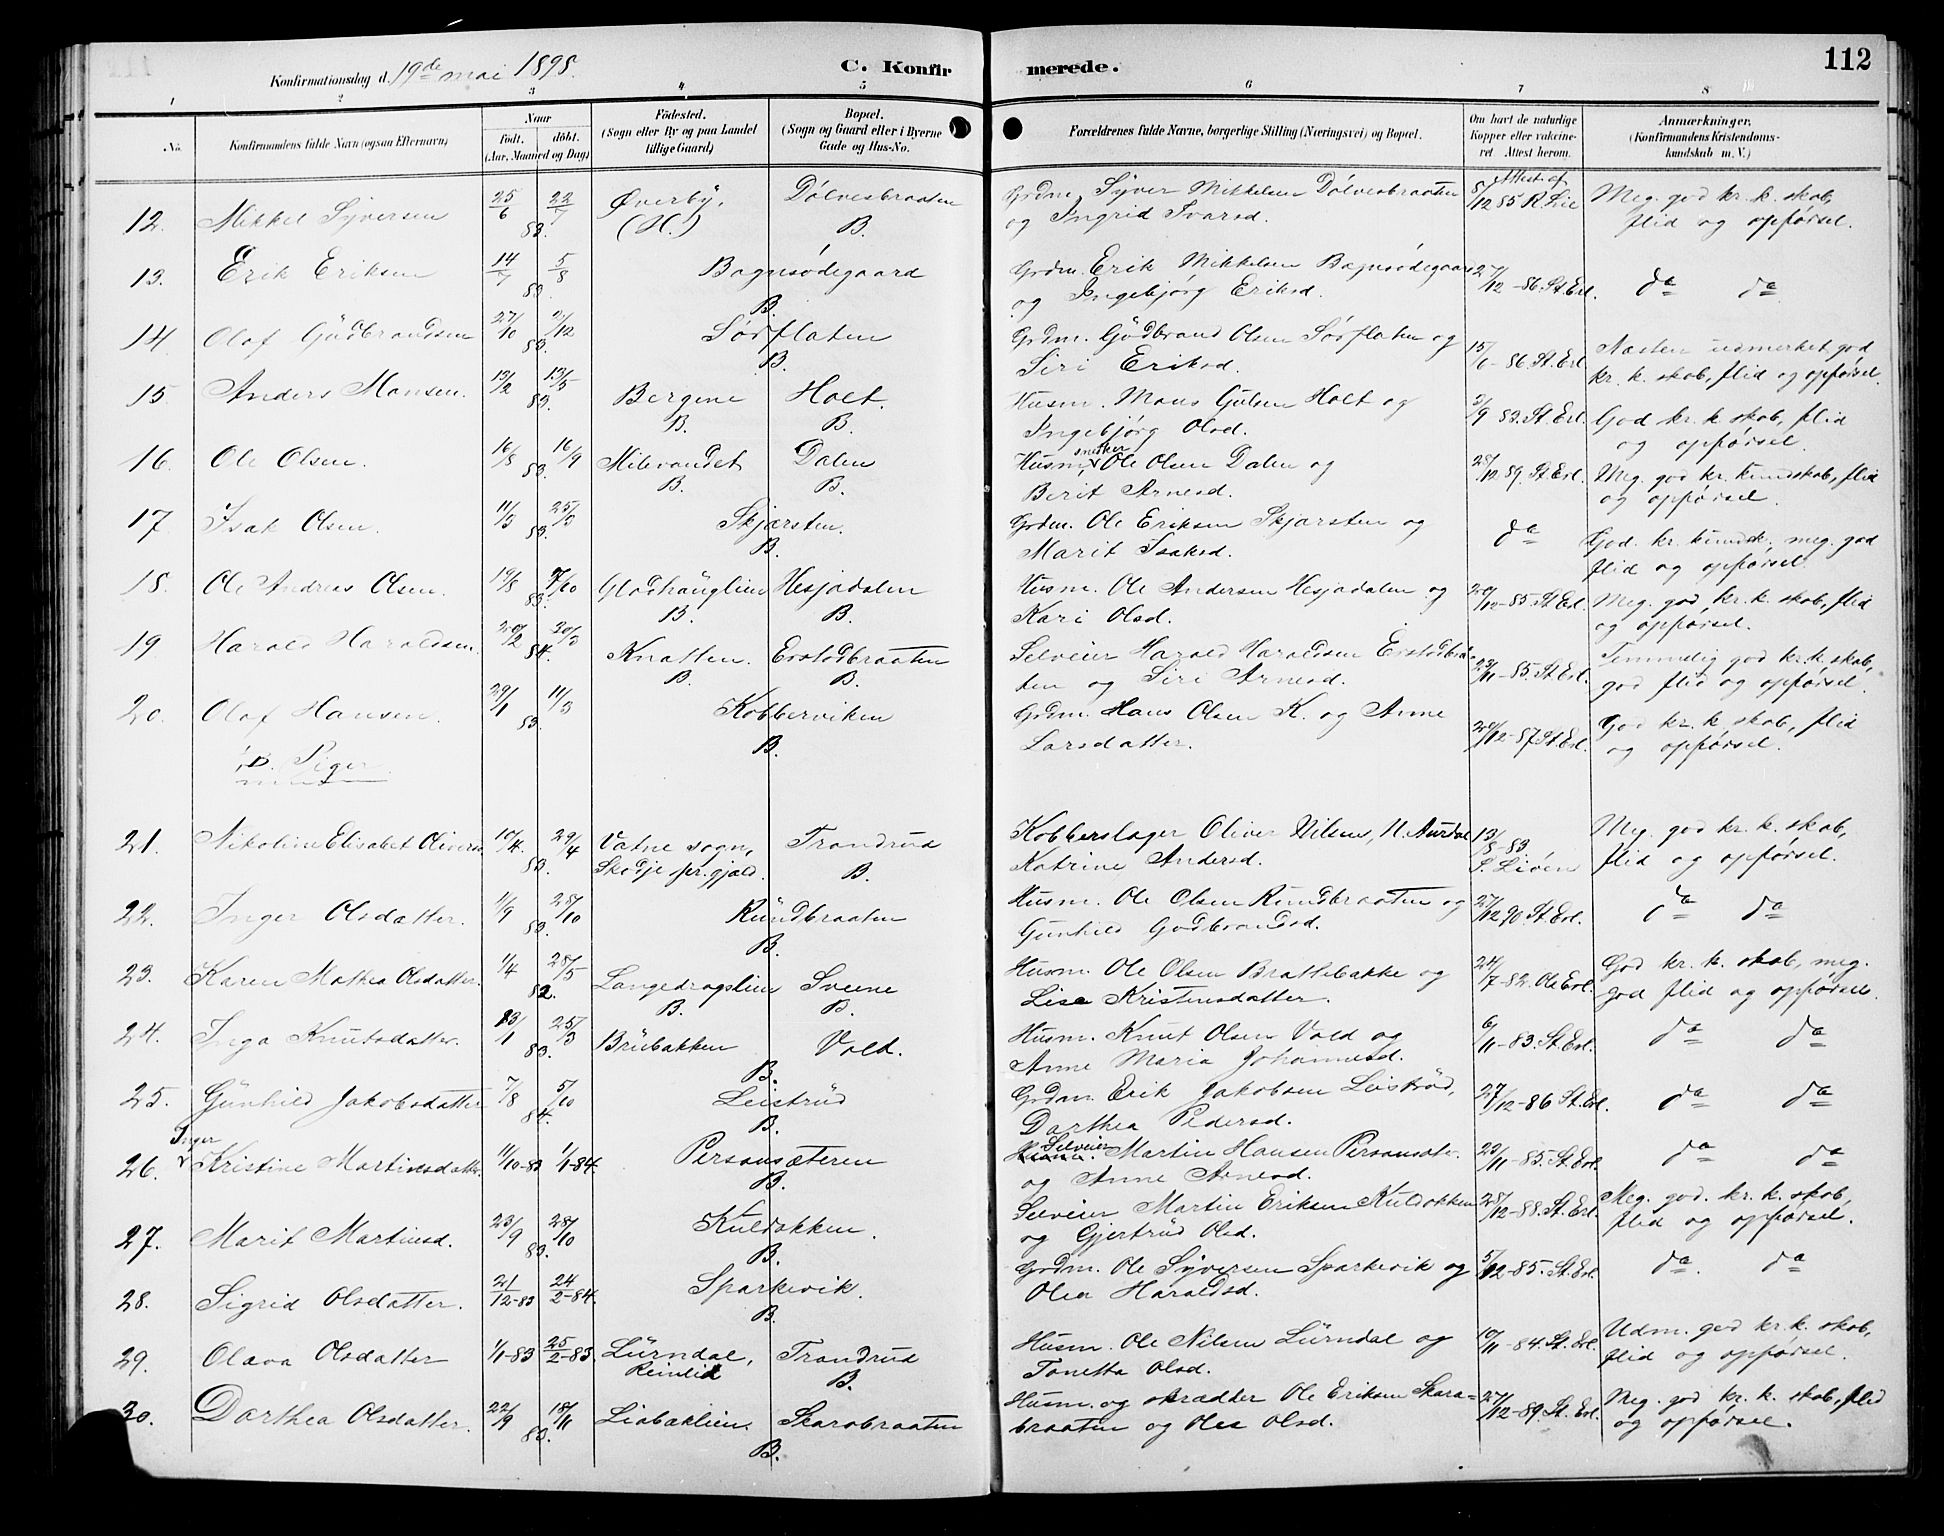 112
Konfirmationsdag d. 19de mai 1898. C. Konfirmerede.
1 2 3 4 5 6 7 8
No. Konfirmandens fulde Navn (ogsaa Efternavn) Naar Født. døbt. (Aar, Maaned og Dag) Fødested. (Sogn eller By og paa Landet tillige Gaard) Bopæl. (Sogn og Gaard eller i Byerne Gade og Hus-No. Forældrenes fulde Navne, borgerlige Stilling (Næringsvei) og Bopæl. Om havt de naturlige Kopper eller vakcineret. Attest herom. Anmærkninger. (Konfirmandens Kristendomskundskab m. V.)
12. Mikkel Syversen 25/6 22/7 83. Øverby, (H.) Dölvesbraaten B. Grdm. Syver Mikkelsen Dölvesbraaten og Ingrid Ivarsd. 8/12 85 Attest af R. Lie Meg. god kr. k. skab, flid og opførsel.
13. Erik Eriksen 14/7 5/8 83. Bagnsödegaard B. Grdm. Erik Mikkelsen Bagnsödegaard og Ingebjörg Eriksd. 27/12-86. St. Erl. da da
14. Olaf Gudbrandsen 27/10 2/12 83. Sörflaten B. Grdm. Gudbrand Olsen Sörflaten og Siri Eriksd. 15/6-86. St. Erl. Næsten udmerket god kr. k. skab, flid og opførsel.
15 Anders Monsen. 13/2 13/5 83. Bergene B. Holt. B. Husm. Mons Gulsen Holt og Ingebjörg Olsd. 3/9 83. St. Erl. God kr. k. skab, flid og opførsel.
16. Ole Olsen. 16/8 16/9 83. Milevandet B. Dalen B. Husm. snekker Ole Olsen Dalen og Berit Arnesd. 28/12 89. St. Erl. Meg. god kr. kundskab, flid og opførsel.
17. Isak Olsen. 11/3 25/3 83. Skjærsten. B. Grdm. Ole Eriksen Skjærsten og Marit Isaksd. da God. kr. kundsk. meg. god flid og opførsel.
18. Ole Andreas Olsen. 19/8 7/10 83. Glådhauglien B. Hesjadalen B. Husm. Ole Andersen Hesjadalen og Kari Olsd. 29/12-85. St. Erl. Meg. god kr. k. skab, flid og opførsel.
19 Harald Haraldsen. 20/2 30/3 84. Knatten. B. Erstadbraaten B. Selveier Harald Haraldsen Erstadbraaten og Siri Arnesd. 23/11-85. St. Erl. Temmelig god kr. k. skab, god flid og opførsel.
20. Olaf Hansen. 29/1 11/3 83. Kobberviken B. Grdm. Hans Olsen K. og Anne Larsdatter. 28/12-87 St. Erl. God kr. k. skab, flid og opførsel.
B. Piger
21. Nikoline Elisabet Oliversd 10/4. 29/4 83. Vatne sogn, Skodje pr. gjæld. Trondrud B. Kobberslager Oliver Nilsen, N. Aurdal Katrine Andersd. 13/8-83 S. Liöen Meg. god kr. k. skab, flid og opførsel.
22. Inger Olsdatter. 11/9 28/10 83. Rundbraaten B. Husm. Ole Olsen Rundbraaten og Gunhild Gudbrandsd. 27/12 90. St. Erl. da da
23. Karen Mathea Olsdatter. 1/4 28/5 82. Langedragslien B. Sveene B. Husm. Ole Olsen Brattebakke og Lise Kristensdatter. 24/7-82. Ole Erl. God kr. k. skab, meg. god flid og opførsel.
24. Inga Knutsdatter. 23/1 25/3 83. Brubakken B. Vold. Husm. Knut Olsen Vold og Anne Maria Johannesd. 6/11-83. St. Erl. da da
25. Gunhild Jakobsdatter 7/8 5/10 84. Leistrud B. Grdm. Erik Jakobsen Leistrud, Dorthea Pedersd. 27/12-86 St. Erl. da da
26. Inger Kristine Martinsdatter. 11/10-83 1/1-84. Personsæteren B. Selveier Martin Hansen Personsæter. og Anne Arnesd. 23/11-85. St. Erl. da da
27. Marit Martinsd. 23/9 28/10 83. Kuldokken. B. Selveier Martin Eriksen Kuldokken og Gjertrud Olsd. 28/12-88. St. Erl. Meg. god. kr. k. skab, flid og opførsel.
28. Sigrid Olsdatter. 21/12-83 24/2-84. Sparkevik. B. Grdm. Ole Syversen Sparkevik og Olea Haraldsd. 5/12-85. St. Erl. da. da
29. Olava Olsdatter 1/1-83 25/2-83. Lurndal, Reinlid Trondrud B. Husm. Ole Nilsen Lurndal og Tonetta Olsd. 10/11-84. St. Erl. Udm. god kr. k. skab, flid og opførsel.
30. Dorthea Olsdatter. 22/9 18/11 83. Liabaklien. Skarabraaten B. Husm. og skrædder Ole Eriksen Skarabraaten og Olea Olsd. 27/12-89. St. Erl. Meg. god kr. k. skab, flid og opførsel.